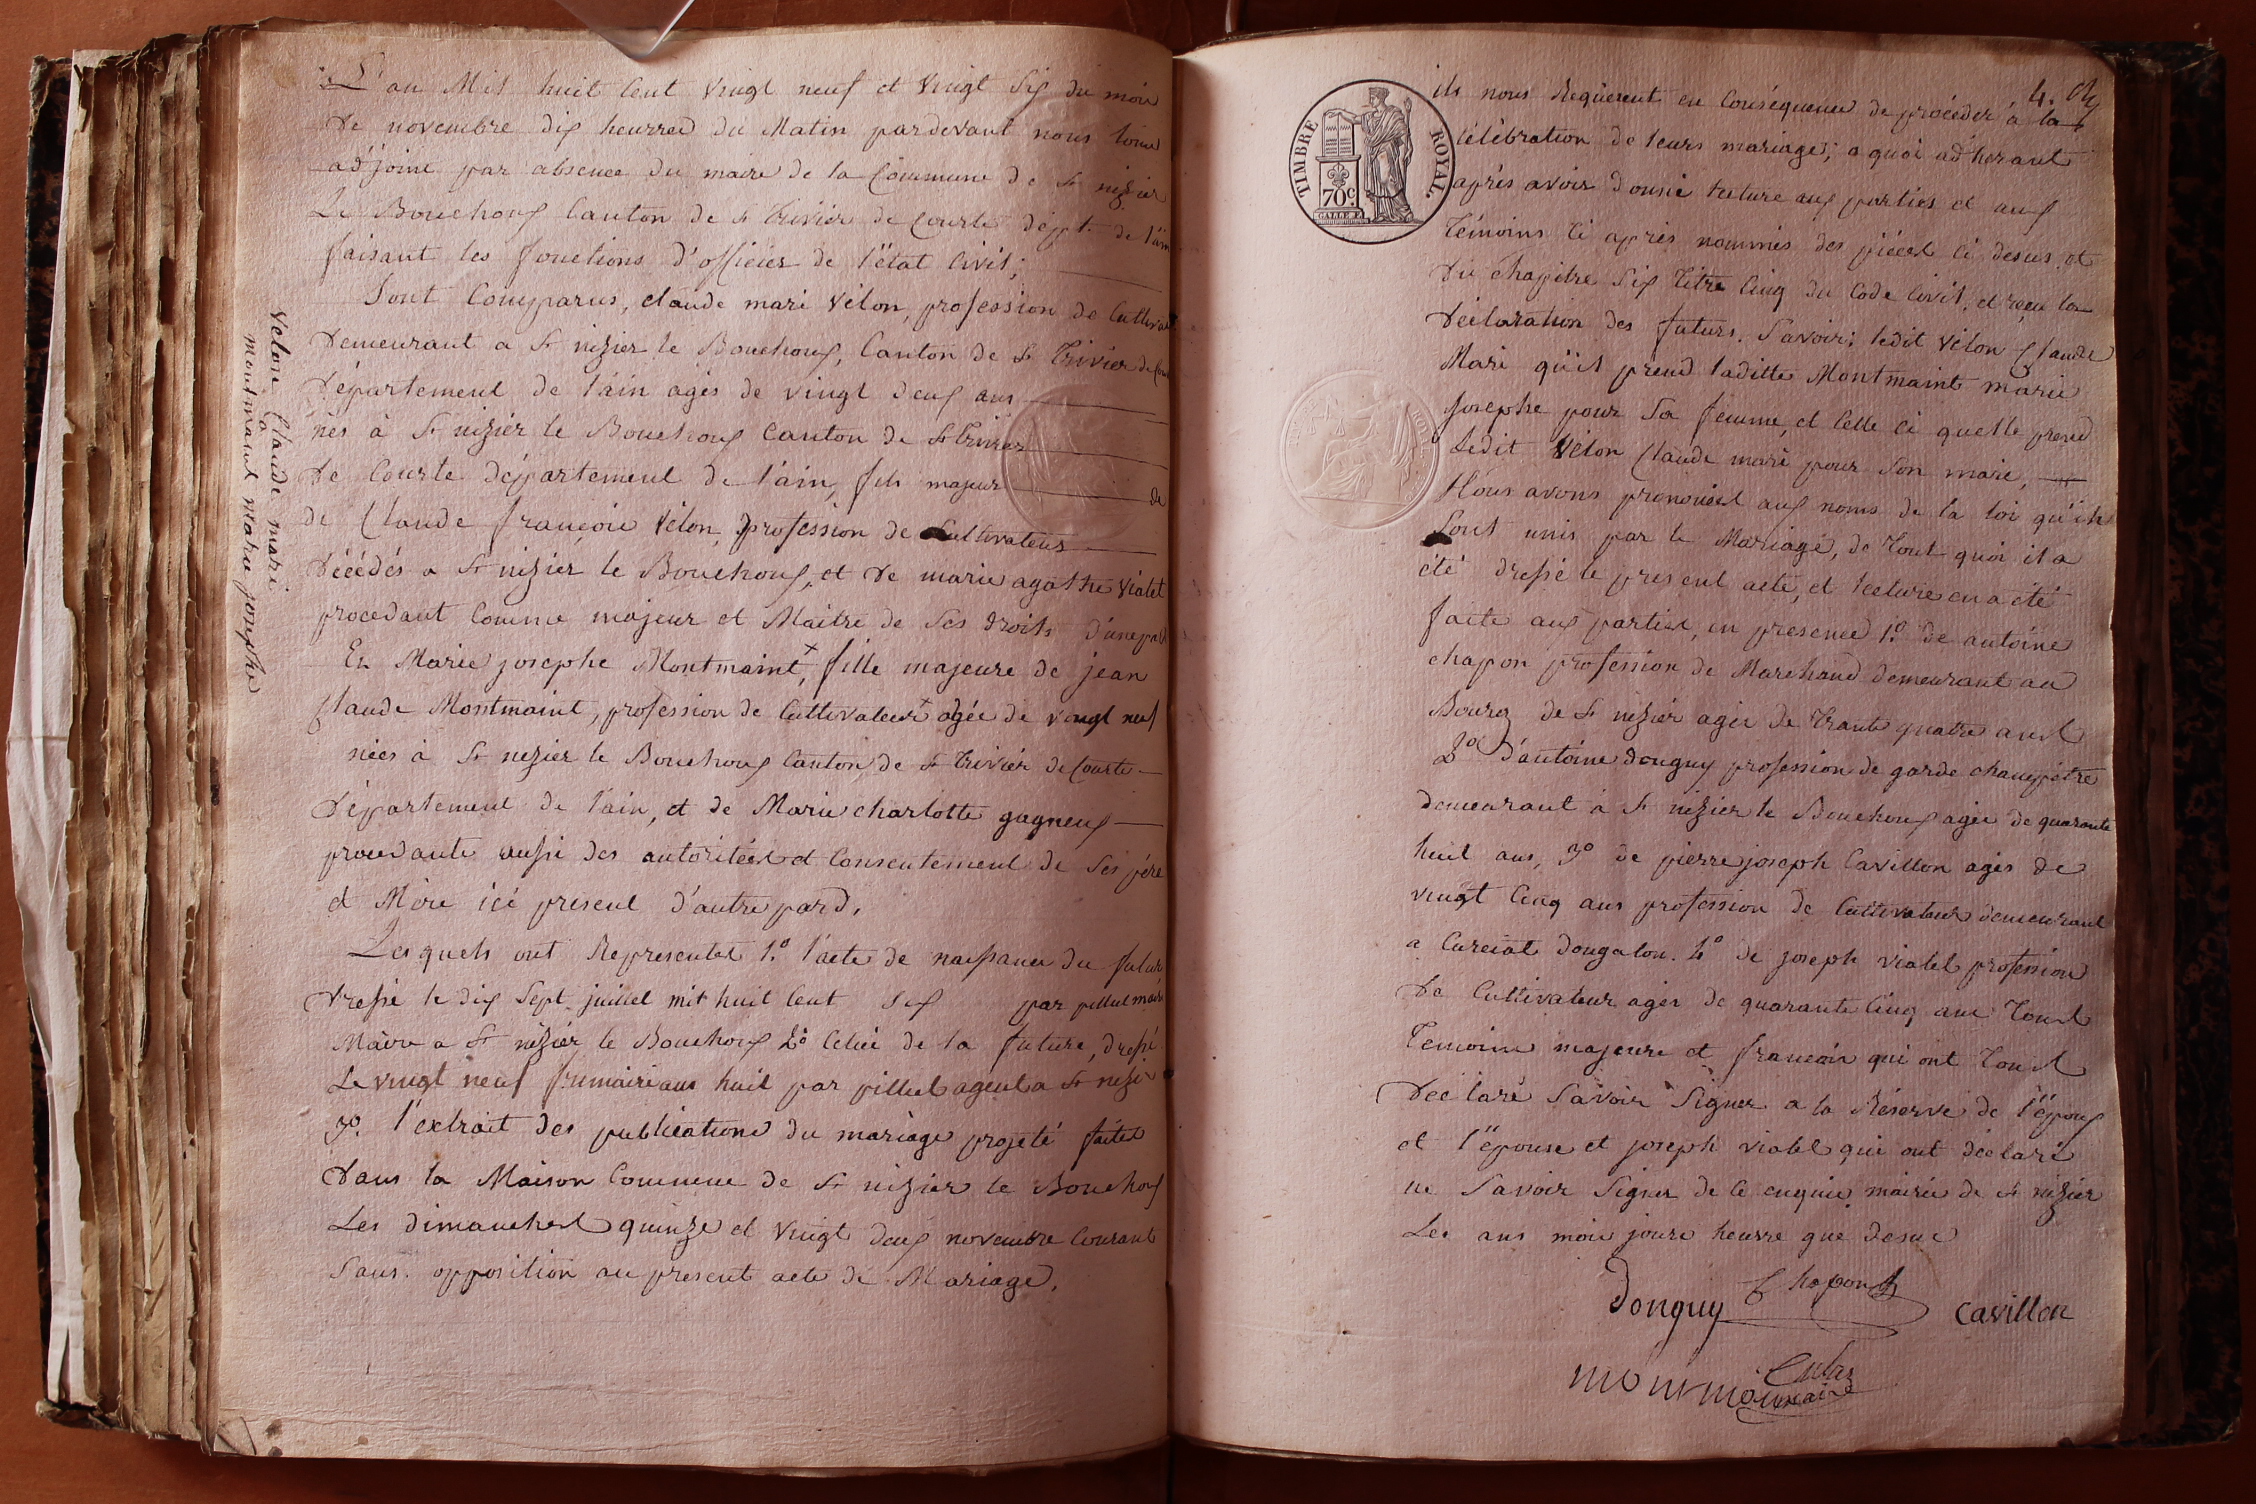 L'an Mil huit Cent Vingt neuf et Vingt Six du mois
de novembre dix heurres du Matin pardevant nous
adjoint par absence du maire de la Commune de St nizier
Le Bouchoux Canton de St trivier de Courte dépt. de l'ain
faisant les fonctions d'officier de l'état Civil;
Sont Comparus, claude mari Vélon, profession de Cultivat
demeurant a St nizier le Bouchoux, Canton de St Trivier de Cour
département de l'ain agés de vingt deux ans
nés à St nizier le Bouchoux Canton de St Trivier
de Courte département de l'ain, fils majeur de
de Claude françois Vélon, profession de Cultivateur
décédés a St nizier le Bouchoux, et de marie agathe Vialet
procedant Comme majeur et Maitre de Ses droits d'une part
Et Marie josephe Montmaint, fille majeure de jean
Claude Montmaint, profession de Cultivateur agée de vingt neuf
nées à St nizier le Bouchoux Canton de St trivier de Courte
département de l'ain, et de Marie charlotte gagneux
procedante aussi des autoritées et Consentement de Ses pére
et Mére ici present d'autre pard.
Lesquels ont Representes 1.º l'acte de naissance du futur
dressé le dix Sept juillet mil huit Cent Six par pilluel
Maire a St nizier le Bouchoux 2º Celui de la future, dressé
Le vingt neuf frimaire ans huit par pilluel agent a St nizier
3º. l'extrait des publications du mariage projeté faites
dans la Maison Commune de St nizier le Bouchoux
Les dimanches quinze et Vingt deux novembre Courant
Sans opposition au present acte de Mariage.
Velon Claude mari
à
montmaint maria josephe
4.
TIMBRE ROYAL
70c.
ils nous Requerent en Conséquence de procéder à la
célébration de leurs mariage; a quoi adherant
après avoir donné lecture aux parties et aux
témoins ci après nommés des piéces ci desus et
du chapitre Six titre Cinq du Code Civil, et reçu la
déclaration des futurs. Savoir: ledit Vélon Claude
Mari qu'il prend laditte Montmaint marie
josephe pour Sa femme, et Celle ci quelle prend
Ledit Vélon Claude mari pour Son mari,
Nous avons prononcés aux noms de la loi qu'ils
Sont unis par le Mariage, de tout quoi il a
été dressé le present acte, et lecture en a été
faite aux parties, en presence 1.º de antoine
chapon profession de Marchand demeurant au
Bourg de St nizier agée de trante quatre ans
2º d'antoine donguy profession de garde champétre
demeurant à St nizier le Bouchoux agée de quarante
huit ans, 3º de pierre joseph Cavillon agés de
vingt Cinq ans profession de Cultivateur demeurant
a Curciat dongalon. 4º de joseph vialet profession
de Cultivateur agés de quarante Cinq ans tous
Temoins majeurs et francais qui ont tous
déclaré Savoir Signer a la Réserve de l'époux
et l'épouse et joseph vialet qui ont déclaré
ne Savoir Signer de Ce enquis mairie de St nizier
Les ans mois jours heurre que desus
Chapon
Donguy
cavillon